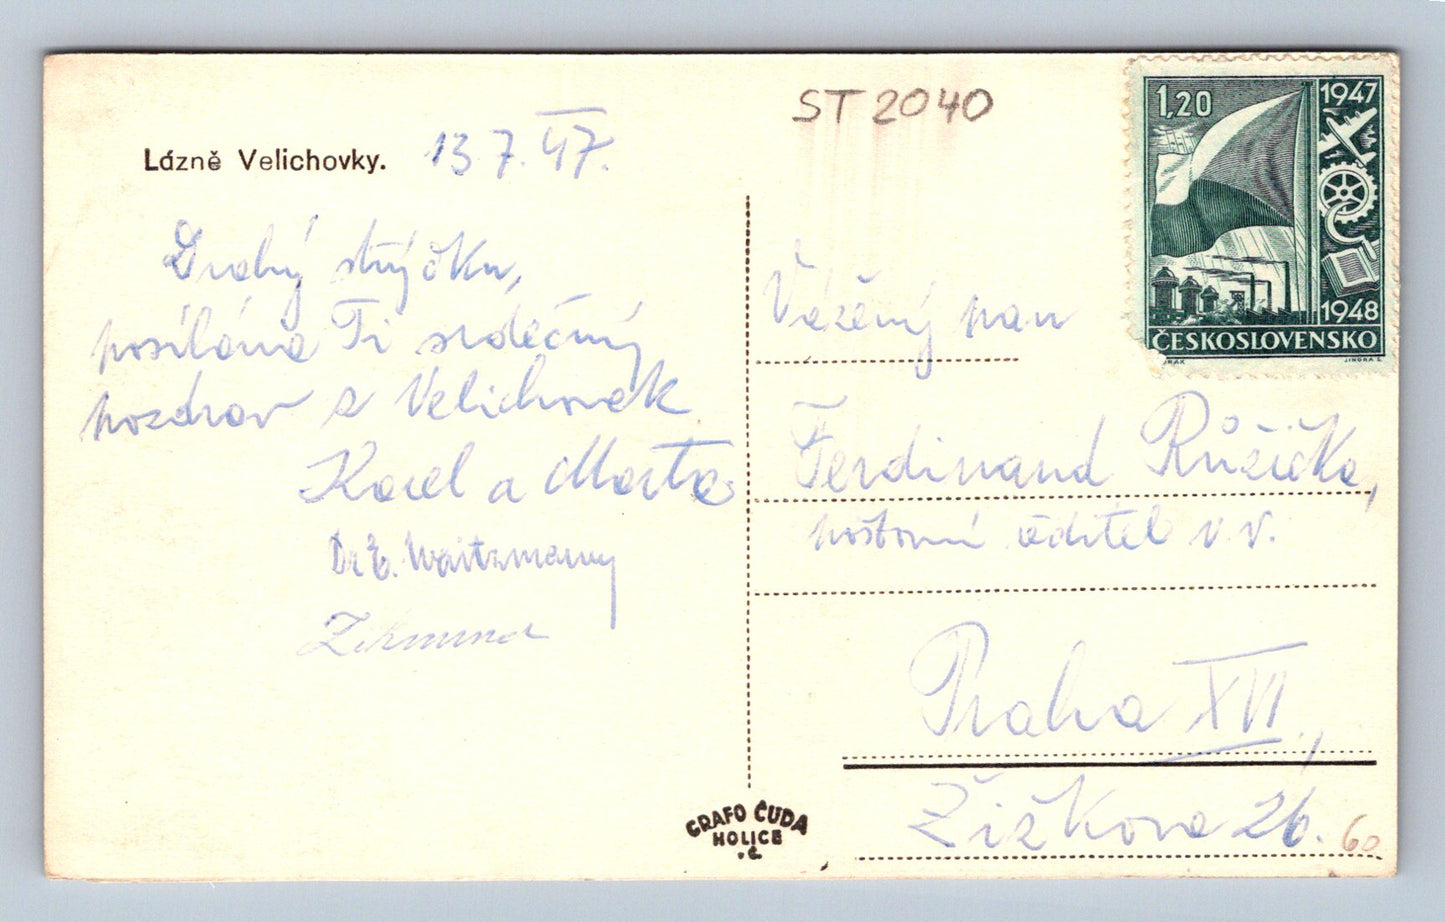 Lázně Velichovky. 13.7.47.
Drahý strýčku,
posíláme Ti srdečný
pozdrav z Velichovek
Karel a Marta
Dr E. Waitzmanny
Zikmund
ST 2040
1,20
1947
1948
ČESKOSLOVENSKO
JINDRA S.
Vážený pan
Ferdinand Růžička,
poštovní ředitel v.v.
Praha XVI,
Žižkova 26.
60
GRAFO ČUDA
HOLICE
v.Č.